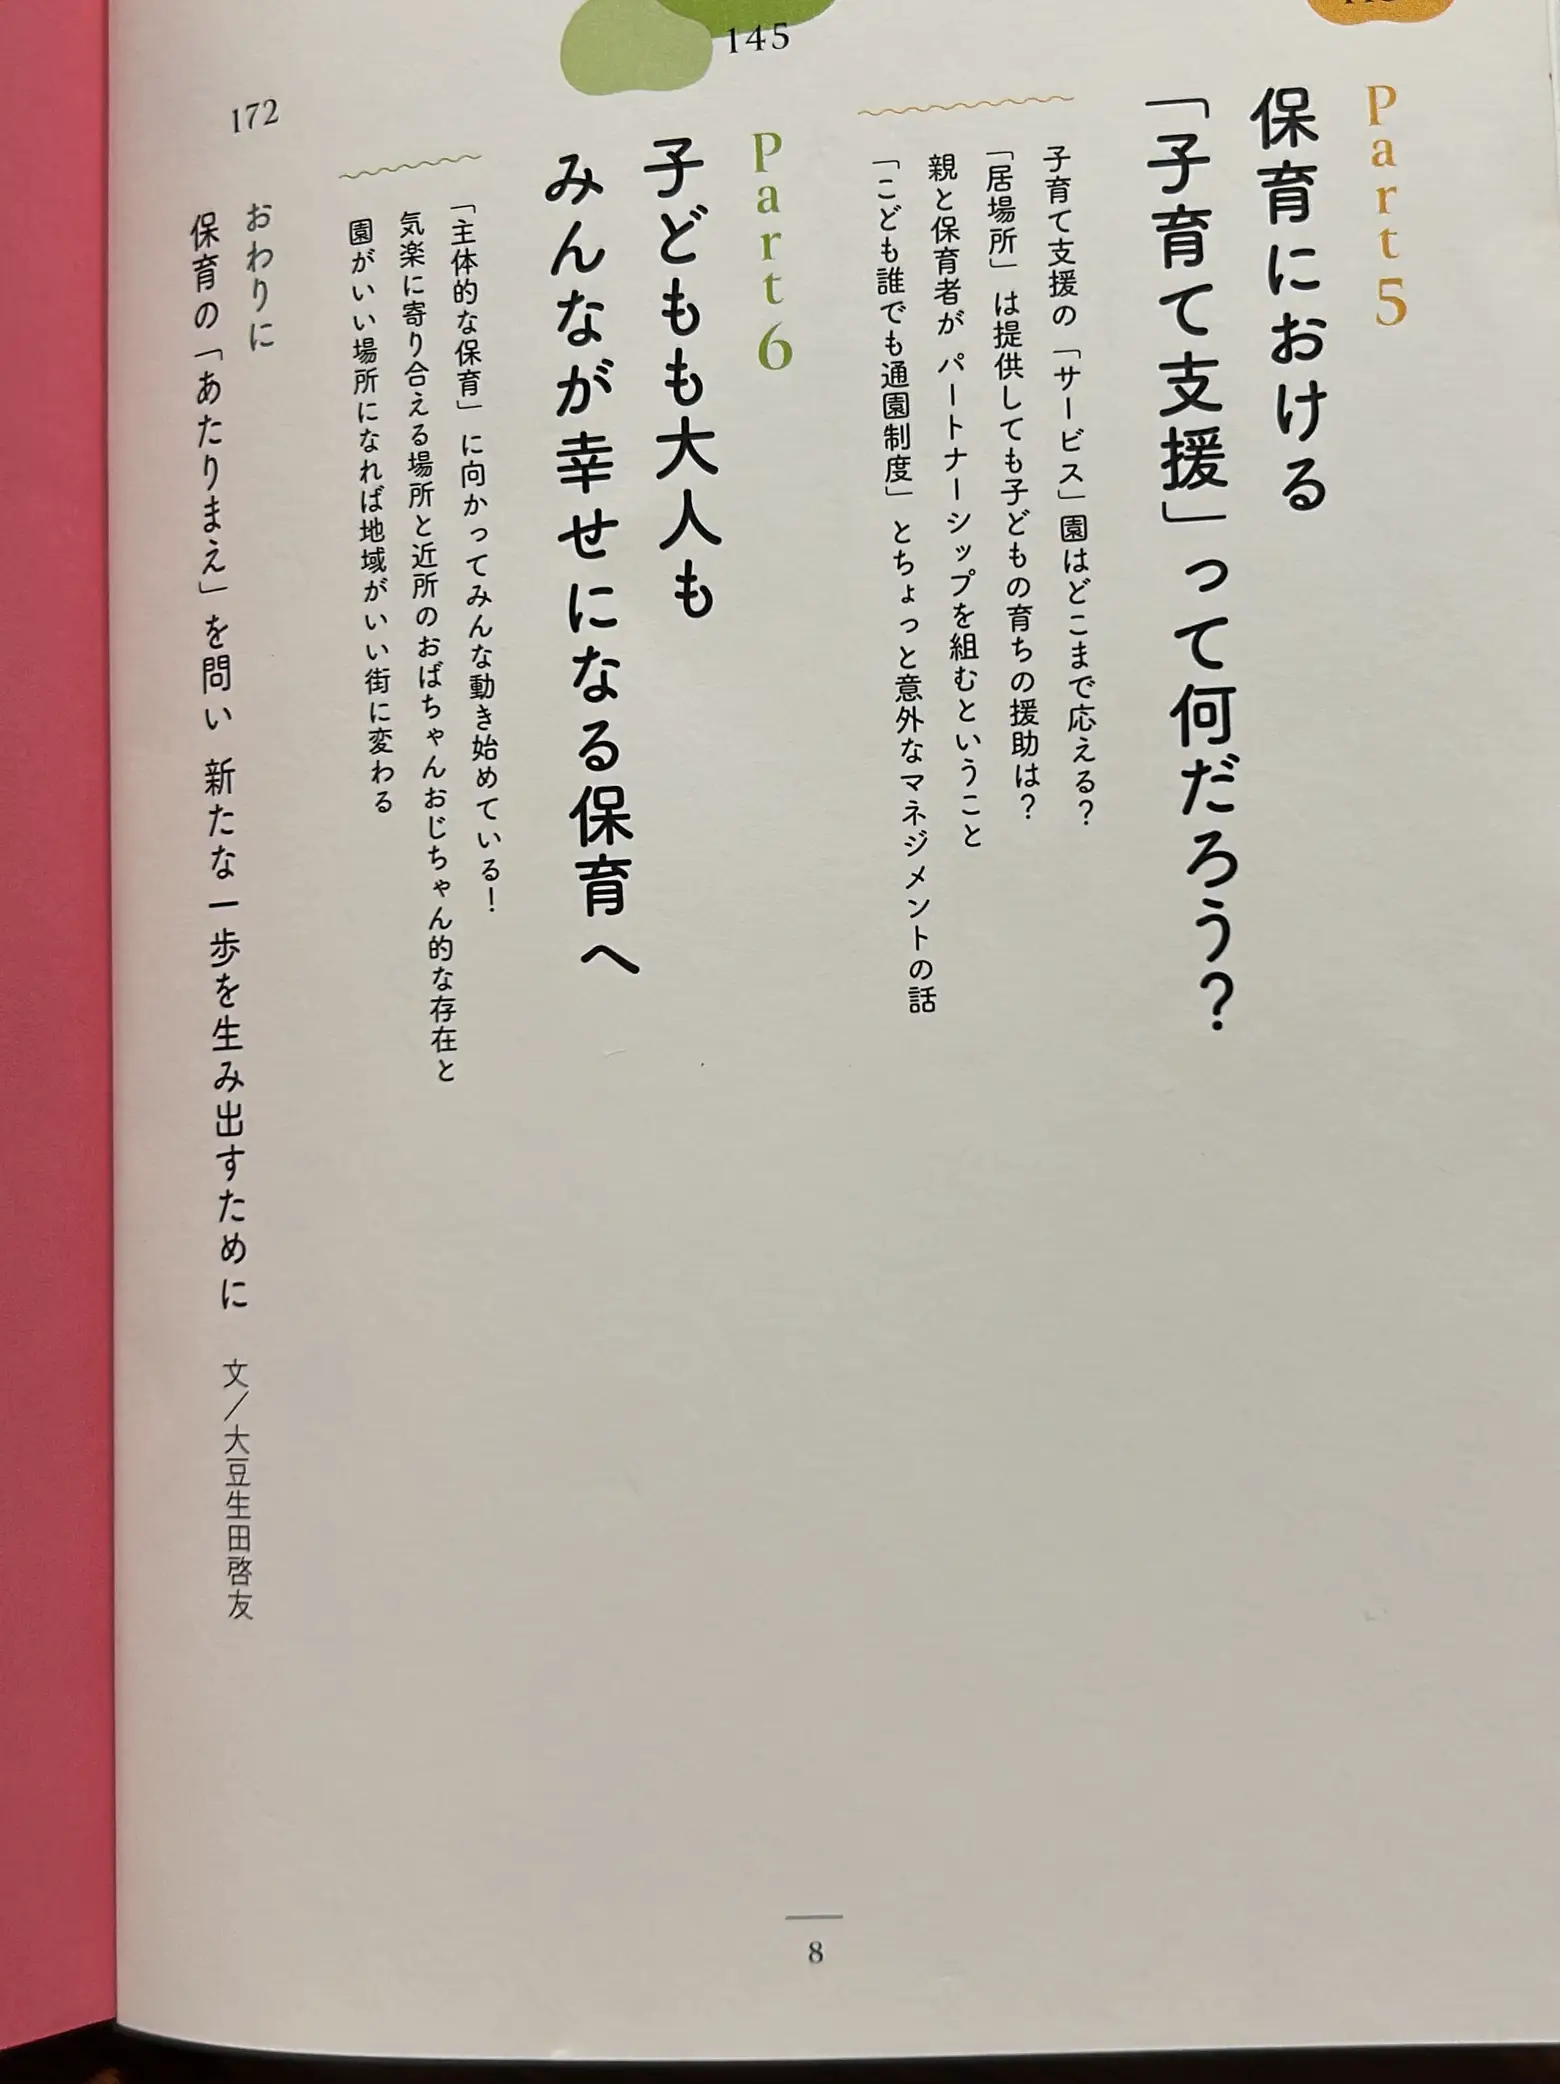 Part5
保育における
「子育て支援」って何だろう？
子育て支援の「サービス」園はどこまで応える？
「居場所」は提供しても子どもの育ちの援助は？
親と保育者が パートナーシップを組むということ
「こども誰でも通園制度」とちょっと意外なマネジメントの話
145
Part6
子どもも大人も
みんなが幸せになる保育へ
「主体的な保育」に向かってみんな動き始めている！
気楽に寄り合える場所と近所のおばちゃんおじちゃん的な存在と
園がいい場所になれば地域がいい街に変わる
172
おわりに
保育の「あたりまえ」を問い 新たな一歩を生み出すために 文／大豆生田啓友
8